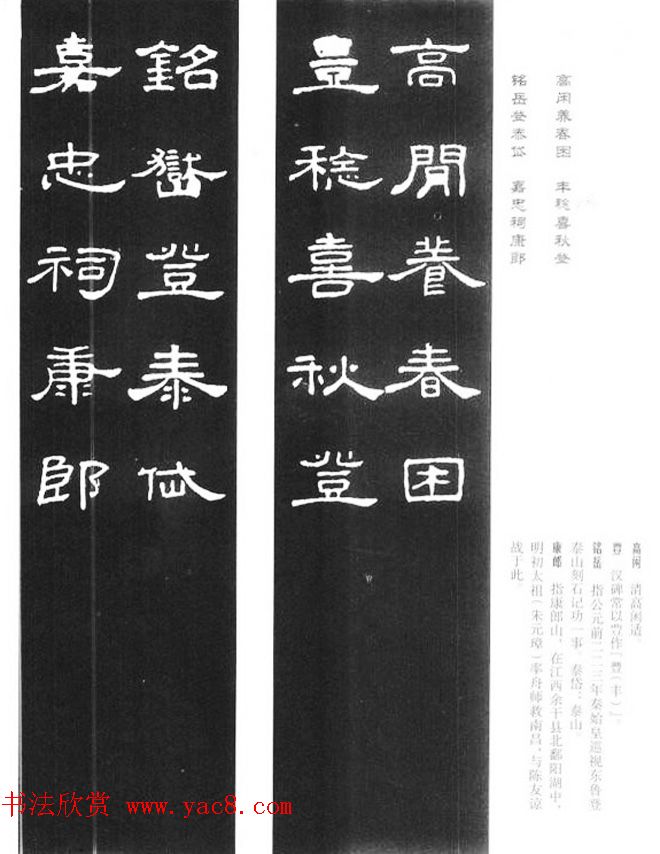 高闲养春困 丰稔喜秋登
铭岳登泰岱 嘉忠祠康郎
高闲 清高闲适。
豊 汉碑常以豊作「豐(丰)」。
铭岳 指公元前二二三年秦始皇巡视东鲁登
泰山刻石记功一事。泰岱：泰山。
康郎 指康郎山，在江西余干县北鄱阳湖中，
明初太祖(朱元璋)率舟师救南昌，与陈友谅
战于此。
高閒養春困
豊稔喜秋登
銘嶽登泰岱
嘉忠祠康郎
书法欣赏 www.yac8.com